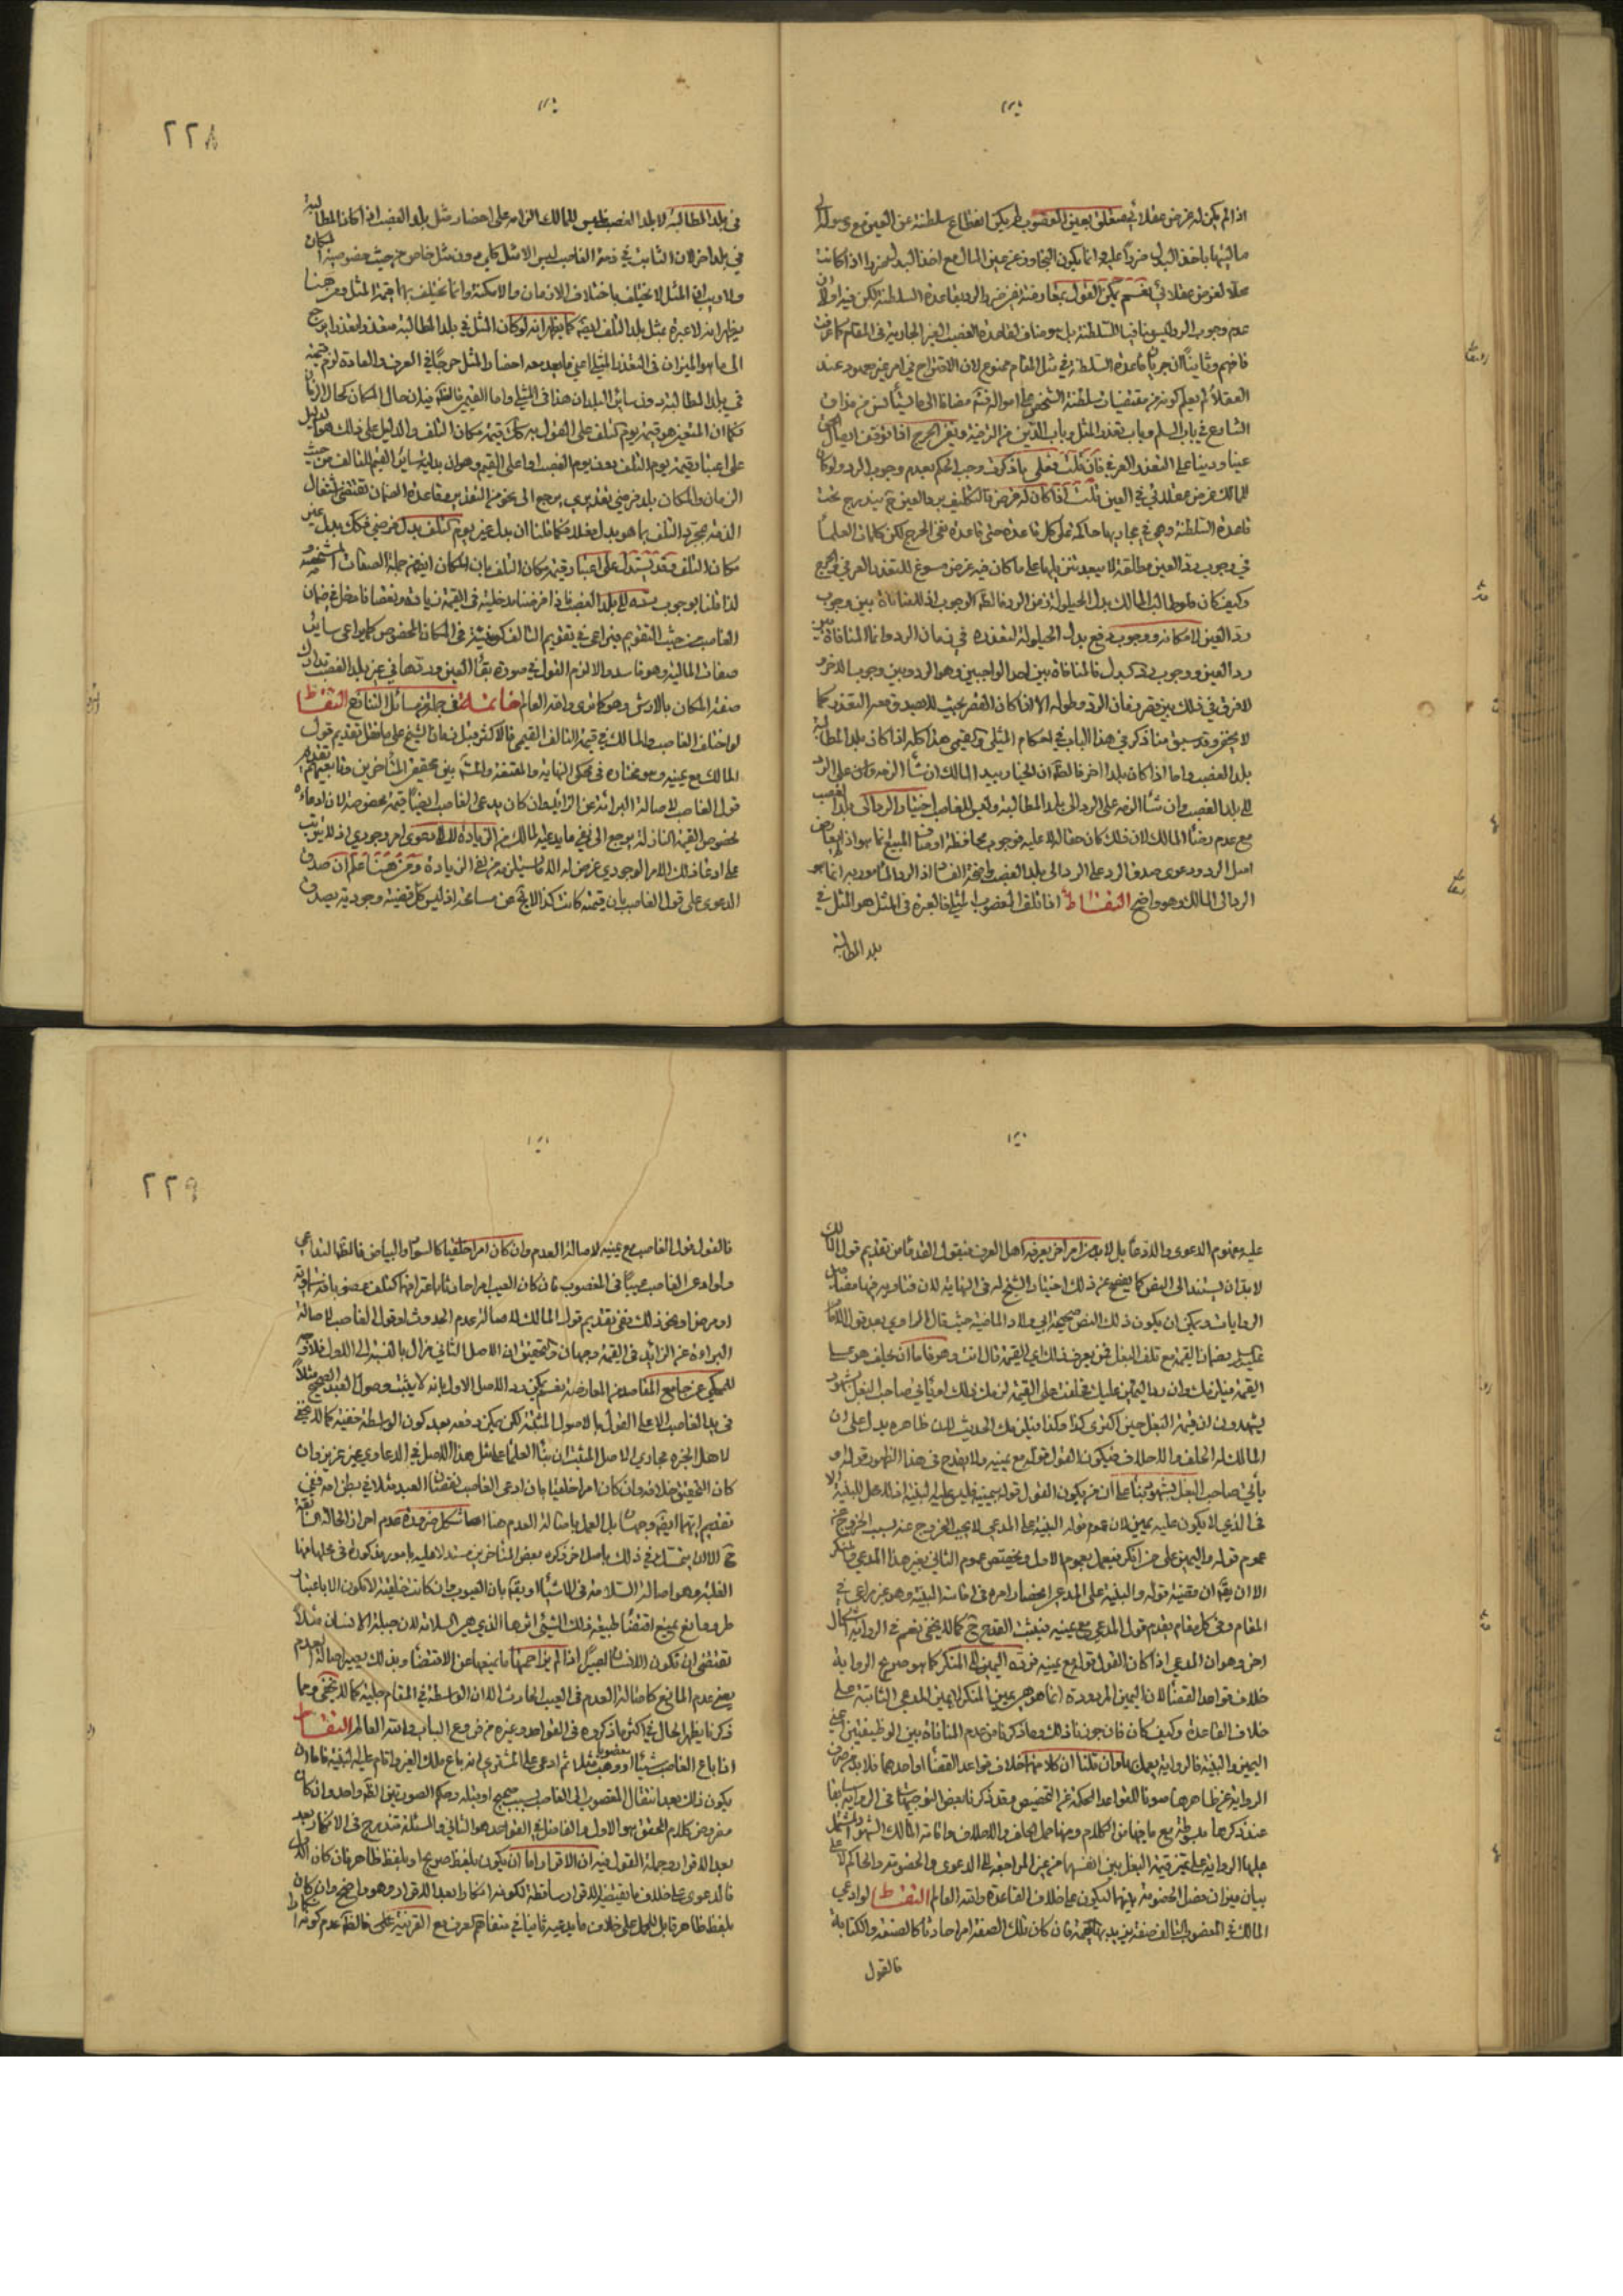 اذا لم يكن له غرض عقلائي متعلق بعين المغصوب لم يكن انقطاع سلطنته عن العين مع وصوله الى
ماليتها باخذ البدل ضررا عليه وانما يكون التجاوز عن عين المال مع اخذ البدل ضررا اذا كانت
محلا لغرض عقلائي نعم يمكن القول بمعارضة الضرر بقاعدة السلطنة لكن فيه اولا ان
عدم وجوب الرد ليس منافيا للسلطنة بل هو مناف لقاعدة الغصب الغير الجارية في المقام كما عرفت
فافهم وثانيا ان جريان قاعدة السلطنة في مثل المقام ممنوع لان الاقتراح في امر غير معدود عند
العقلاء لم يعلم كونه من مقتضيات سلطنة الشخص على امواله مضافا الى ما يستأنس من مذاق
الشارع في باب السلم وباب تعذر المثل وباب الدين من الترخيص الحرج اذا توقف ايصال الحق
عينا ودينا على التعذر العرفي فان قلت فعلى ما ذكرت وجب الحكم بعدم وجوب الرد ولو كان
للمالك غرض عقلائي في العين قلت اذا كان له غرض فالتكليف برد العين ح يندرج تحت
قاعدة السلطنة وهي في مجاريها حاكمة على كل قاعدة حتى قاعدة نفي الحرج لكن كلمات العلماء
في وجوب رد العين مطلقة لا يبعد تنزيلها على ما كان فيه غرض مسوغ للتعذر العرفي في الحرج
وكيف كان فلو طالب المالك بدل الحيلولة زمن الرد فالظ الوجوب اذ لا منافاة بين وجوب
رد العين لامكانه ووجوب دفع بدل الحيلولة لتعذره في زمان الرد وانما المنافاة بين
رد العين ووجوب رد كبدل فالمنافاة بين احد الواجبين وهو الرد وبين وجوب الاخر و
لا فرق في ذلك بين قصر زمان الرد وطوله الا اذا كان القصر بحيث لا يصدق معه التعذر كما
لا يخفى وقد سبق منا ذكر في هذا الباب في احكام المثلي والقيمي هذا كله اذا كان بلد المطالبة
بلد الغصب واما اذا كان بلدا اخر فالظ ان الخيار بيد المالك ان شاء الزمه على الرد
الى بلد الغصب وان شاء الزمه على الرد الى بلد المطالبة وليس للغاصب اختيار الرد الى بلد الغصب
مع عدم رضا المالك لان ذلك كان حقا له لا عليه فوجوب محافظة اوصاف المبيع انما هو اذا لم يعارض
اصل الرد ودعوى صدق الرد على الرد الى بلد الغصب واضحة الفساد اذ الرد المأمور به انما هو
الرد الى المالك وهو واضح التقاط اذا تلف المغصوب المثلي فالعبرة في المثل هو المثل في
بلد المطالبة
٢٢٨
في بلد المطالبة لا بلد الغصب فليس للمالك الزامه على احضار مثل بلد الغصب اذا كان المطالبة
في بلد اخر لان الثابت في ذمة الغاصب ليس الا مثل كلي دون مثل خاص من حيث خصوصية المكان
ولا ريب ان المثل لا يختلف باختلاف الازمان والامكنة وانما يختلف بهما قيمة المثل ومن هنا
يظهر انه لا عبرة بمثل بلد التلف ايضا كما يظهر انه لو كان المثل في بلد المطالبة متعذرا يرجع
الى ما هو الميزان في التعذر المثلي اعني ما يعد معه احضار المثل حرجيا في العرف والعادة لزم قيمته
في بلد المطالبة دون سائر البلدان هذا في المثلي واما القيمي فالظ فيه ان حال المكان كحال الزمان
فكما ان المتعين هو قيمة يوم التلف على القول به كك قيمة مكان التلف والدليل على ذلك هو الدليل
على اعتبار قيمة يوم التلف دون يوم الغصب او اعلى القيم وهو ان بدلية سائر القيم للتالف من حيث
الزمان والمكان بدل فرضي تقديري يرجع الى نحو من التقدير وقاعدة الضمان تقتضي اشتغال
الذمة بمجرد التلف بما هو بدل فعلا فكما قلنا ان بدل غير يوم التلف بدل فرضي فكك بدل غير
مكان التلف وقد يستدل على اعتبار قيمة مكان التلف بان المكان ايضا من جملة الصفات المشخصة و
لذا قلنا بوجوب رده الى بلد الغصب فاذا فرضنا مدخليته في القيمة زيادة ونقصا فدخل في ضمان
الغاصب من حيث التقويم فيراعى في تقويم التالف كونه في المكان المخصوص كما يراعى سائر
صفات المالية وهو فاسد والا لزم القول في صورة بقاء العين وردها في غير بلد الغصب تدارك
صفة المكان بالارش وهو كما ترى والله العالم خاتمة في جملة من مسائل التنازع التقاط
لو اختلف الغاصب والمالك في قيمة التالف القيمي فالاكثر قبل زمان الشيخ على ما نقل تقديم قول
المالك مع يمينه وهو مختاره في محكي النهاية والمقنعة والمشهور بين محققي المتأخرين ومتابعيهم تقديم
قول الغاصب لاصالة البرائة عن الزائد وان كان يدعي الغاصب ايضا قيمة مخصوصة لان ادعاءه
لخصوص القيمة النازلة يرجع الى نفي ما يدعيه المالك من الزيادة لا الى دعوى امر وجودي اذ لا يترتب
على ادعاء ذلك الامر الوجودي غرض له الا ما يستلزمه من نفي الزيادة ومن هنا علم ان صدق
الدعوى على قول الغاصب بان قيمته كانت كذا لا يخ عن مسامحة اذ ليس كل قضية وجودية يصدق
عليه مفهوم الدعوى والادعاء بل لا بد من امر اخر يعرفه اهل العرف فيقول القدماء من تقديم قول المالك
لا بد ان يستند الى النص كما يفصح عن ذلك اختيار الشيخ له في النهاية لان فتاويه فيها مضامين
الروايات ويمكن ان يكون ذلك النص صحيحة ابي ولاد الماضية حيث قال الراوي بعد قول الامام
عليه السلم بضمان القيمة مع تلف البغل فمن يعرف ذلك اي القيمة قال انت وهو فاما ان يحلف هو على
القيمة فيلزمك وان رد اليمين عليك فحلفت على القيمة لزمك ذلك او يأتي صاحب البغل بشهود
يشهدون ان قيمة البغل حين اكترى كذا وكذا فيلزمك الحديث لان ظاهره يدل على ان
المالك له الحلف والاحلاف فيكون القول قوله مع يمينه ولا يقدح في هذا الظهور قوله او
يأتي صاحب البغل بشهود بناء على ان من يكون القول قوله بيمينه فليس عليه البينة اذ لا محل للبينة الا
في الذي لا يكون عليه يمين لان عموم قوله البينة على المدعي لا يجب الخروج عنه بسبب الخروج عن
عموم قوله واليمين على من انكر فيعمل بعموم الاول ويختص عموم الثاني بغير هذا المدعي والمنكر
الا ان يقال ان قضية قوله والبينة على المدعي انحصار امره في اقامة البينة وهو غير مراعى في
المقام وفي كل مقام يقدم قول المدعي مع يمينه فيثبت القدح ح كما لا يخفى نعم في الرواية اشكال
اخر وهو ان المدعي اذا كان القول قوله مع يمينه فرده اليمين الى المنكر كما هو صريح الرواية
خلاف قواعد القضاء لان اليمين المردودة انما هو يمين المنكر لا يمين المدعي الثابتة على
خلاف القاعدة وكيف كان فان جوزنا ذلك وما ذكرنا من عدم المنافاة بين الوظيفتين اعني
اليمين والبينة فالرواية يعمل بها وان قلنا ان كلاهما خلاف قواعد القضاء او احدهما فلا بد من صرف
الرواية عن ظاهرها صونا للقواعد المحكمة عن التخصيص وقد ذكرنا بعض التوجيهات في الرواية سابقا
عند ذكرها مبسوطة مع ما فيها من الكلام ومنها حمل الحلف والاحلاف واقامة المالك الشهود المشتمل
عليها الرواية على تمييز قيمة البغل بين انفسهما من غير المراجعة الى الدعوى والخصومة والحاكم لا على
بيان ميزان فصل الخصومة بينهما ليكون على خلاف القاعدة والله العالم التقاط لو ادعى
المالك في المغصوب التالف صفة يزيد بها القيمة فان كان تلك الصفة امرا حادثا كالصنعة والكتابة
فالقول
٢٢٩
فالقول قول الغاصب مع يمينه لاصالة العدم وان كان امرا خلقيا كالسواد والبياض فالظ التداعي
ولو ادعى الغاصب عيبا في المغصوب فان كان العيب امرا حادثا باعترافهما كتلف عضو بافة سماوية
او مرض او نحو ذلك ففي تقديم قول المالك لاصالة عدم الحدوث او قول الغاصب لاصالة
البراءة عن الزائد في القيمة وجهان والتحقيق ان الاصل الثاني مزال بالنسبة الى الاول خلافا
للمحكي عن جامع المقاصد من المعارضة نعم يمكن رد الاصل الاول بانه لا يثبت وصول العبد الصحيح مثلا
في يد الغاصب الا على القول بالاصول المثبتة لكن يمكن دفعه بعد كون الواسطة خفية كما لا يخفى
لاهل الخبرة بمجاري الاصل المثبت ان بناء العلماء على مثل هذا الاصل في الدعاوي غير عزيز وان
كان التحقيق خلافه وان كان امرا خلقيا بان ادعى الغاصب نقصان العبد مثلا في بطن امه ففي
تقديم ايهما ايضا وجهان بل العمل باصالة العدم هنا اشكل من صورة عدم احراز الحالة السابقة
ح الا ان يتمسك في ذلك باصل اخر ذكره بعض المتأخرين مستدلا عليه بامور مذكورة في محلها منها
الغلبة وهو اصالة السلامة في الاشياء او يقال بان العيوب وان كانت خلقية لا تكون الا باعتبار
طرو مانع يمنع اقتضاء طبيعة ذلك الشئ اثرها الذي هي السلامة لان جبلة الانسان مثلا
تقتضي ان تكون الانسان بصيرا اذا لم يزاحمها ما يمنعها عن الاقتضاء وبذلك يصير اصالة العدم
يعني عدم المانع كاصالة العدم في العيب الحادث الا ان الواسطة في المقام جلية كما لا يخفى ومما
ذكرنا يظهر الحال في اكثر ما ذكروه في القواعد وغيره من فروع الباب والله العالم التقاط
اذا باع الغاصب شيئا او وهبه مثلا ثم ادعى على المشتري انه باع ملك الغير واقام عليه البينة فاما ان
يكون ذلك بعد انتقال المغصوب الى الغاصب بسبب صحيح او قبله وحكم الصورتين الظ واحد وان كان
مفروض كلام المحقق هو الاول والفاضل في القواعد هو الثاني والمسئلة تندرج في الانكار بعد
بعد الاقرار وجملة القول فيه ان الاقرار اما ان يكون بلفظ صريح او بلفظ ظاهر فان كان الاول
فالدعوى على خلاف ما يقتضيه الاقرار ساقطة لكونه انكارا بعد الاقرار وهو واضح وان كان
بلفظ ظاهر قابل للحمل على خلاف ما يدعيه ثانيا في متفاهم العرف مع القرينة على فالظ عدم كونه انكارا